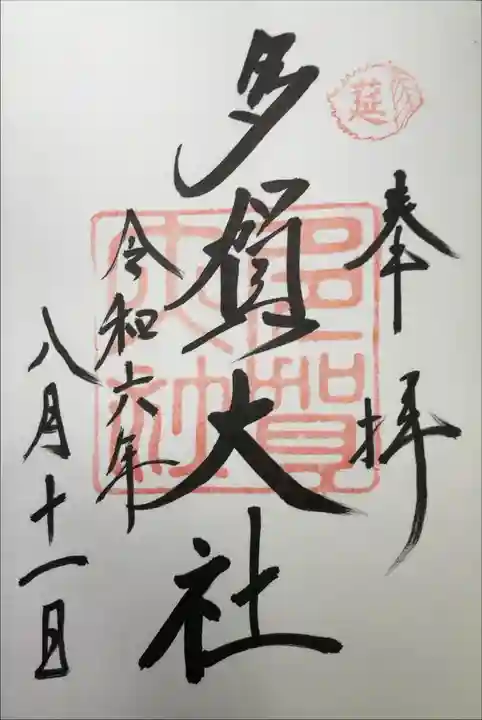 奉拝
莚
多賀大社
多賀大社
令和六年
八月十一日